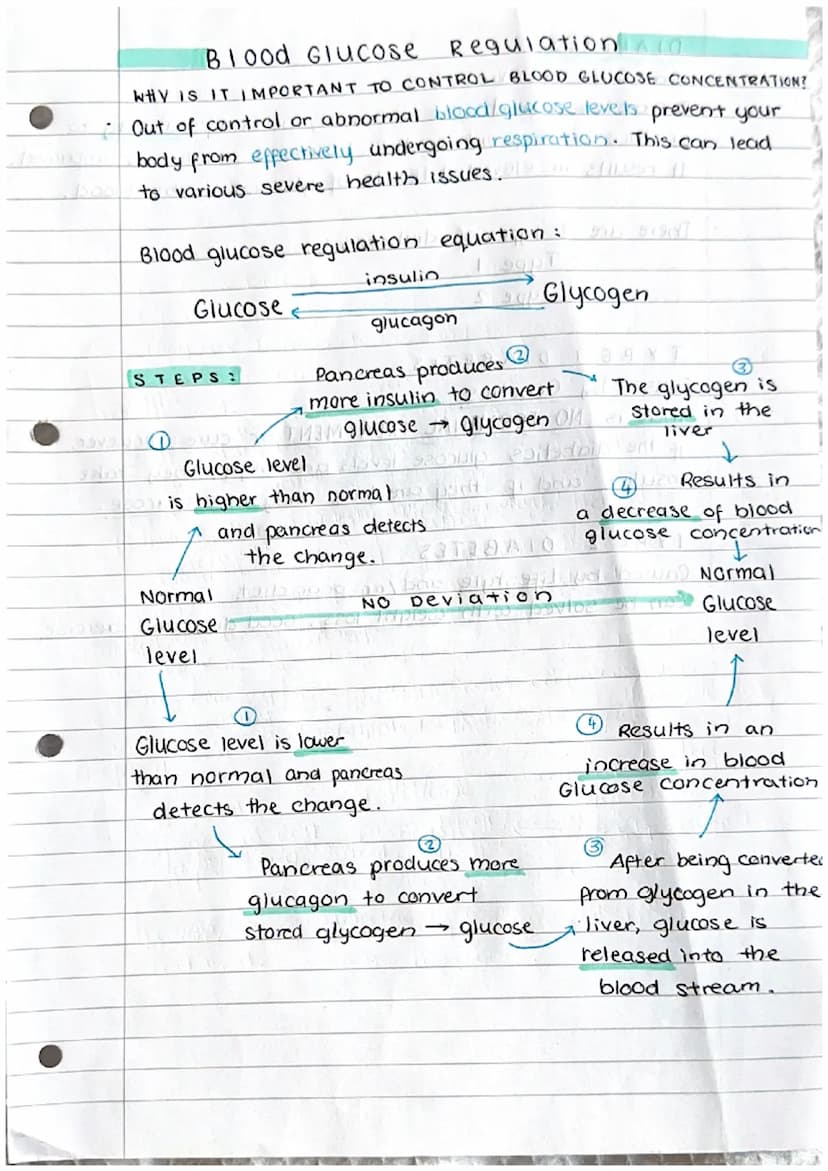 Blood Glucose Regulation
WHY IS IT IMPORTANT TO CONTROL BLOOD GLUCOSE CONCENTRATION?
Out of control or abnormal blood/glucose levels prevent your
body from effectively undergoing respiration. This can lead
to various severe health issues.
Blood glucose regulation equation:
insulin
Glucose Glycogen
glucagon
STEPS:
① Glucose level
is higher than normal
and pancreas detects
the change.
② Pancreas produces
more insulin to convert
glucose → glycogen
③ The glycogen is
stored in the
liver
④ Results in
a decrease of blood
glucose concentration
Normal
Glucose
level
NO Deviation
Normal
Glucose
level
① Glucose level is lower
than normal and pancreas
detects the change.
② Pancreas produces more
glucagon to convert
stored glycogen → glucose
③ After being converte
from glycogen in the
liver, glucose is
released into the
blood stream.
④ Results in an
increase in blood
Glucose concentration